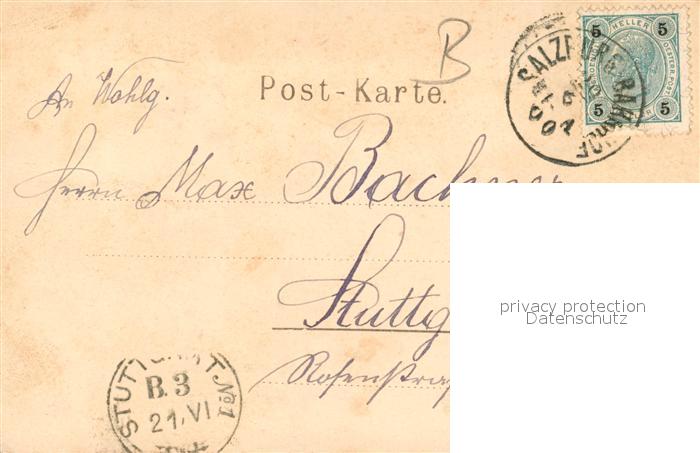 B
Post-Karte.
An Wohlg.
Herrn Max Bachner
Stuttg
Rosenstraß
SALZBURG BAHNHOF
5 HELLER 5
5 5
STUTTGART No1
B.3
21.VI
privacy protection
Datenschutz